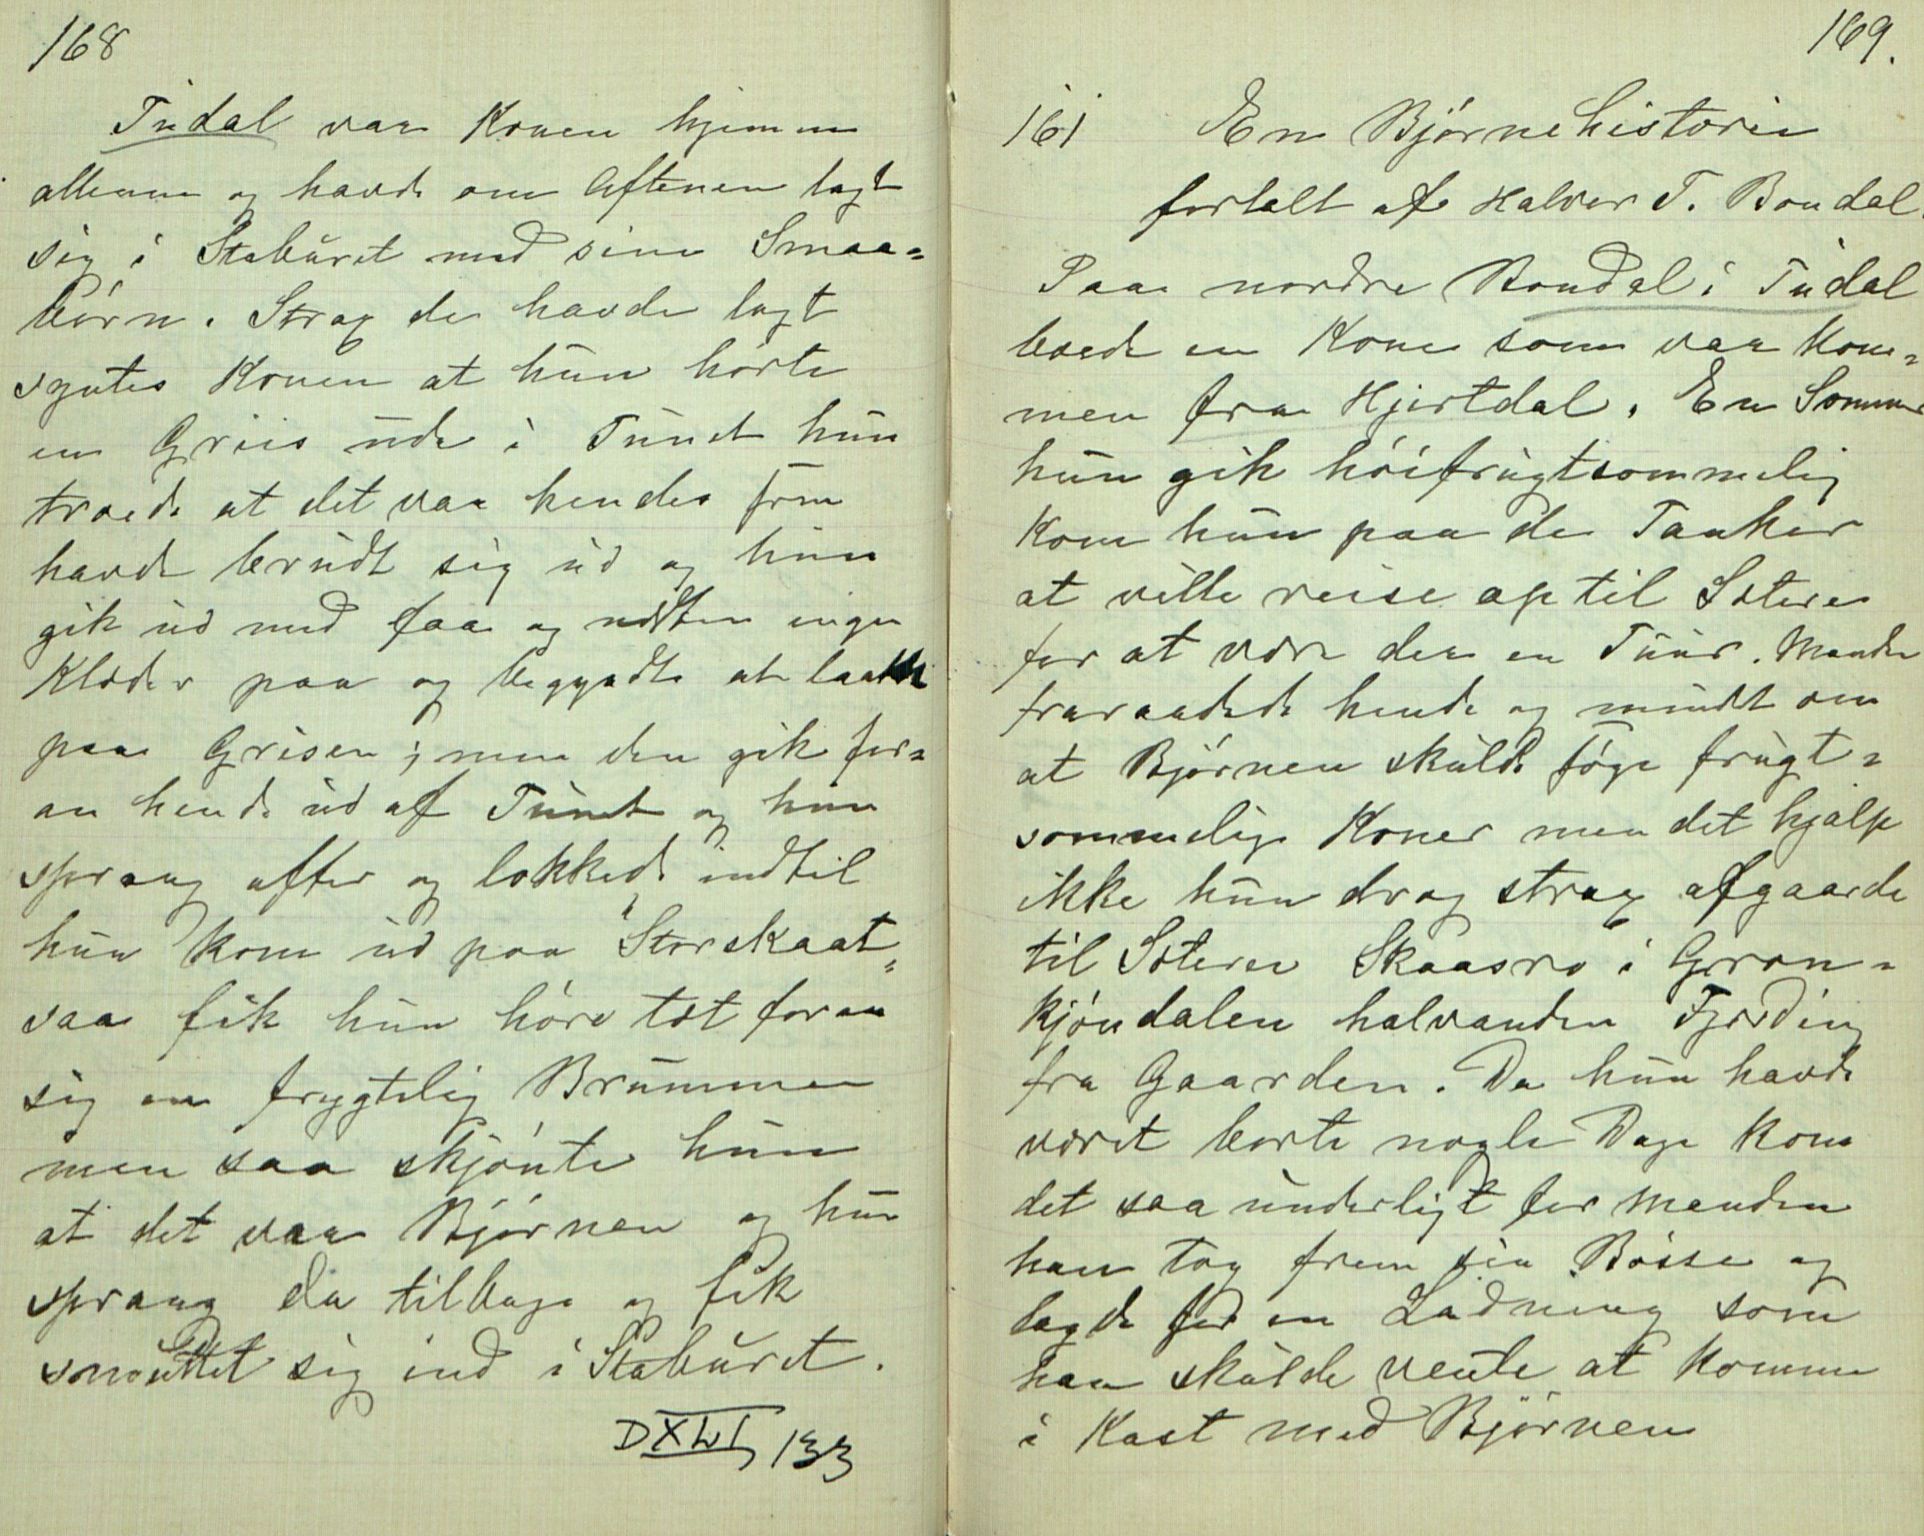 168
Tudal var Konen hjemme
alleene og havde om Aftenen lagt
sig i Staburet med sine Smaa=
børn. Strax de havde lagt
syntes Konen at hun hørte
en Griis ude i Tunet hun
troede at det var hendes som
havde brudt sig ud og hun
gik ud med faa og næsten ingen
Klæder paa og begyndte at laakke
paa Grisen; men den gik for=
an hende ud af Tunet og hun
sprang efter og lokkede indtil
hun kom ud paa Storskaat=
saa fik hun høre tæt foran
sig en frygtelig Brummen
men saa skjønte hun
at det var Bjørnen og hun
sprang da tilbage og fik
smuttet sig ind i Staburet.
DXLI 133
169.
161 En Bjørnehistorie
fortalt af Halvor T. Bondal.
Paa nordre Bondal i Tudal
boede en Kone som var Kom=
men fra Hjertdal. En Sommer
hun gik høifrugtsommelig
Kom hun paa de Tanker
at ville reise op til Sæteren
for at være der en Tuur. Manden
fraraadede hende og mindet om
at Bjørnen skulde søge frugt=
sommelige Koner men det hjalp
ikke hun drog strax afgaarde
til Sæteren Skaasro i Grøn=
kjøndalen halvanden Fjerding
fra Gaarden. Da hun havde
været borte nogle Dage kom
det saa underligt for Manden
han tog frem sin Bøsse og
lagde for en Ladning som
han skulde vente at Komme
i Kast med Bjørnen